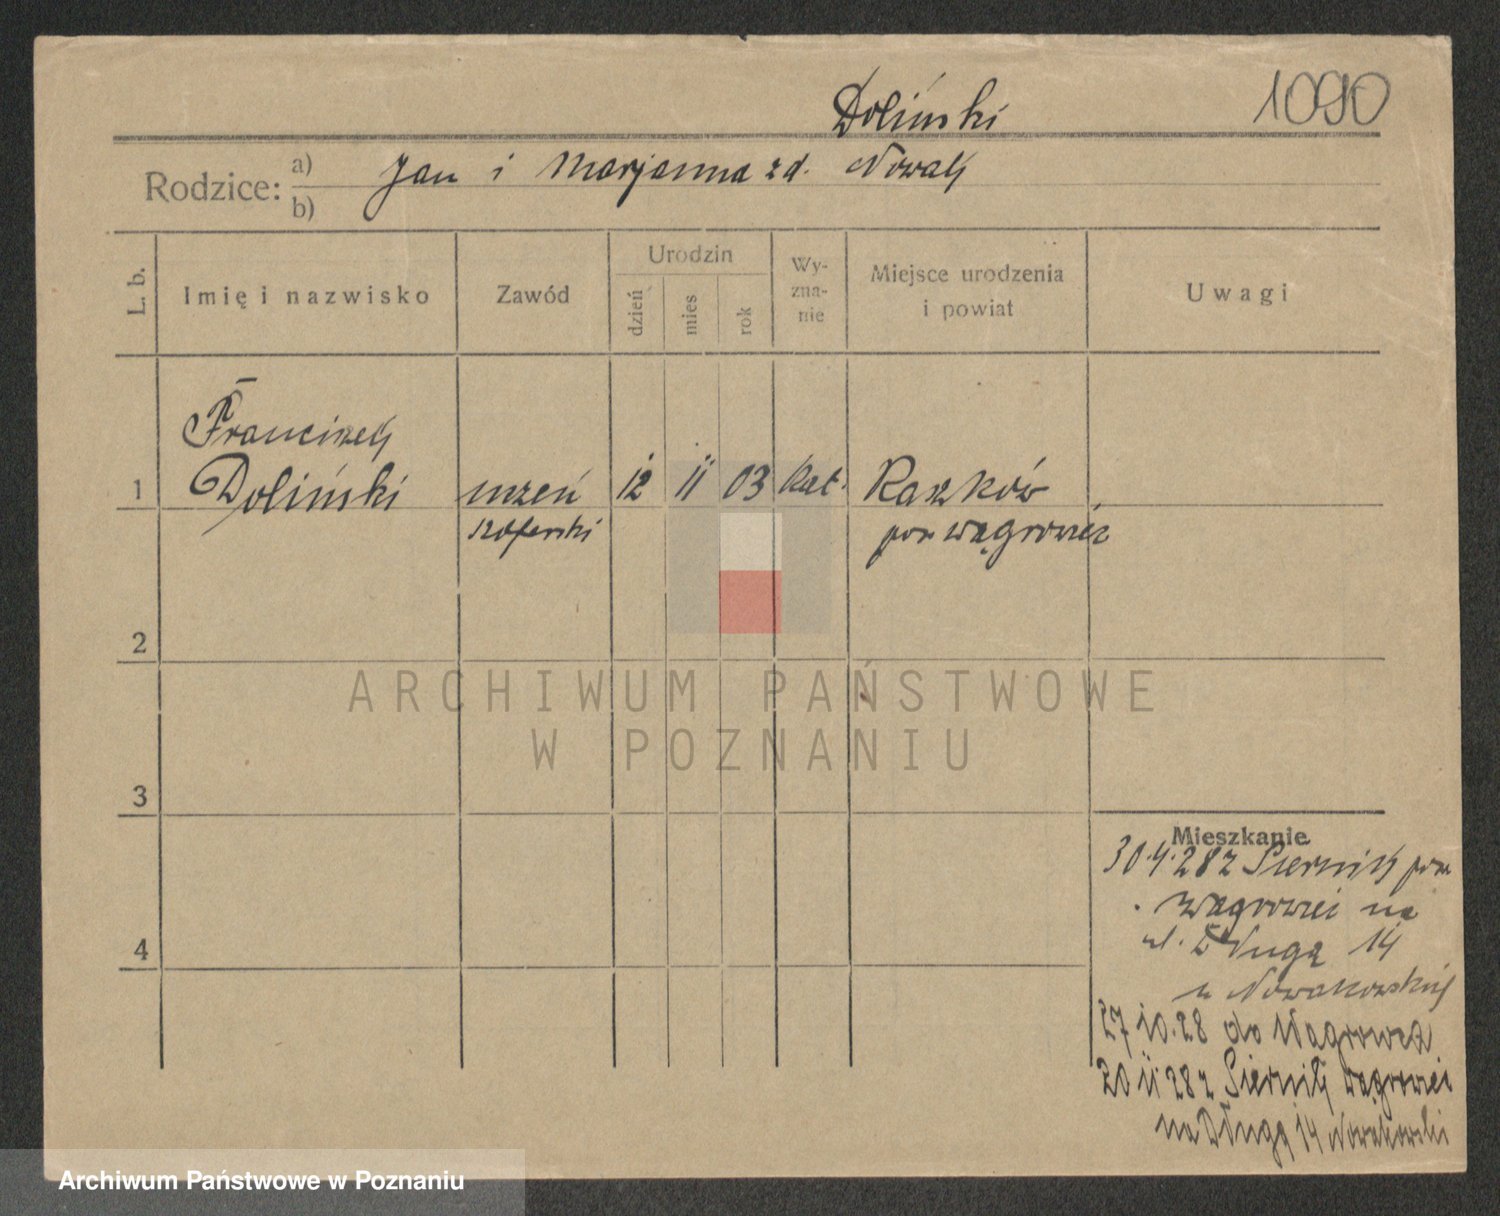 1090
Doliński
Rodzice: a) b) Jan i Marjanna zd. Nowak
L. b.
Imię i nazwisko
Zawód
Urodzin
dzień
mies
rok
Wy-
zna-
nie
Miejsce urodzenia
i powiat
Uwagi
Franciszek
1 Doliński uczeń 12 11 03 kat. Raszków
szoferski pow Wągrowiec
2
ARCHIWUM PAŃSTWOWE
W POZNANIU
3
Mieszkanie
30.4.28 z Siernik pow
Wągrowiec na
4
ul. Długą 14
u Nowakowskiej
27 10.28 do Wągrowca
20 11 28 z Siernik Wągrowiec
na Długą 14 Nowakowski
Archiwum Państwowe w Poznaniu